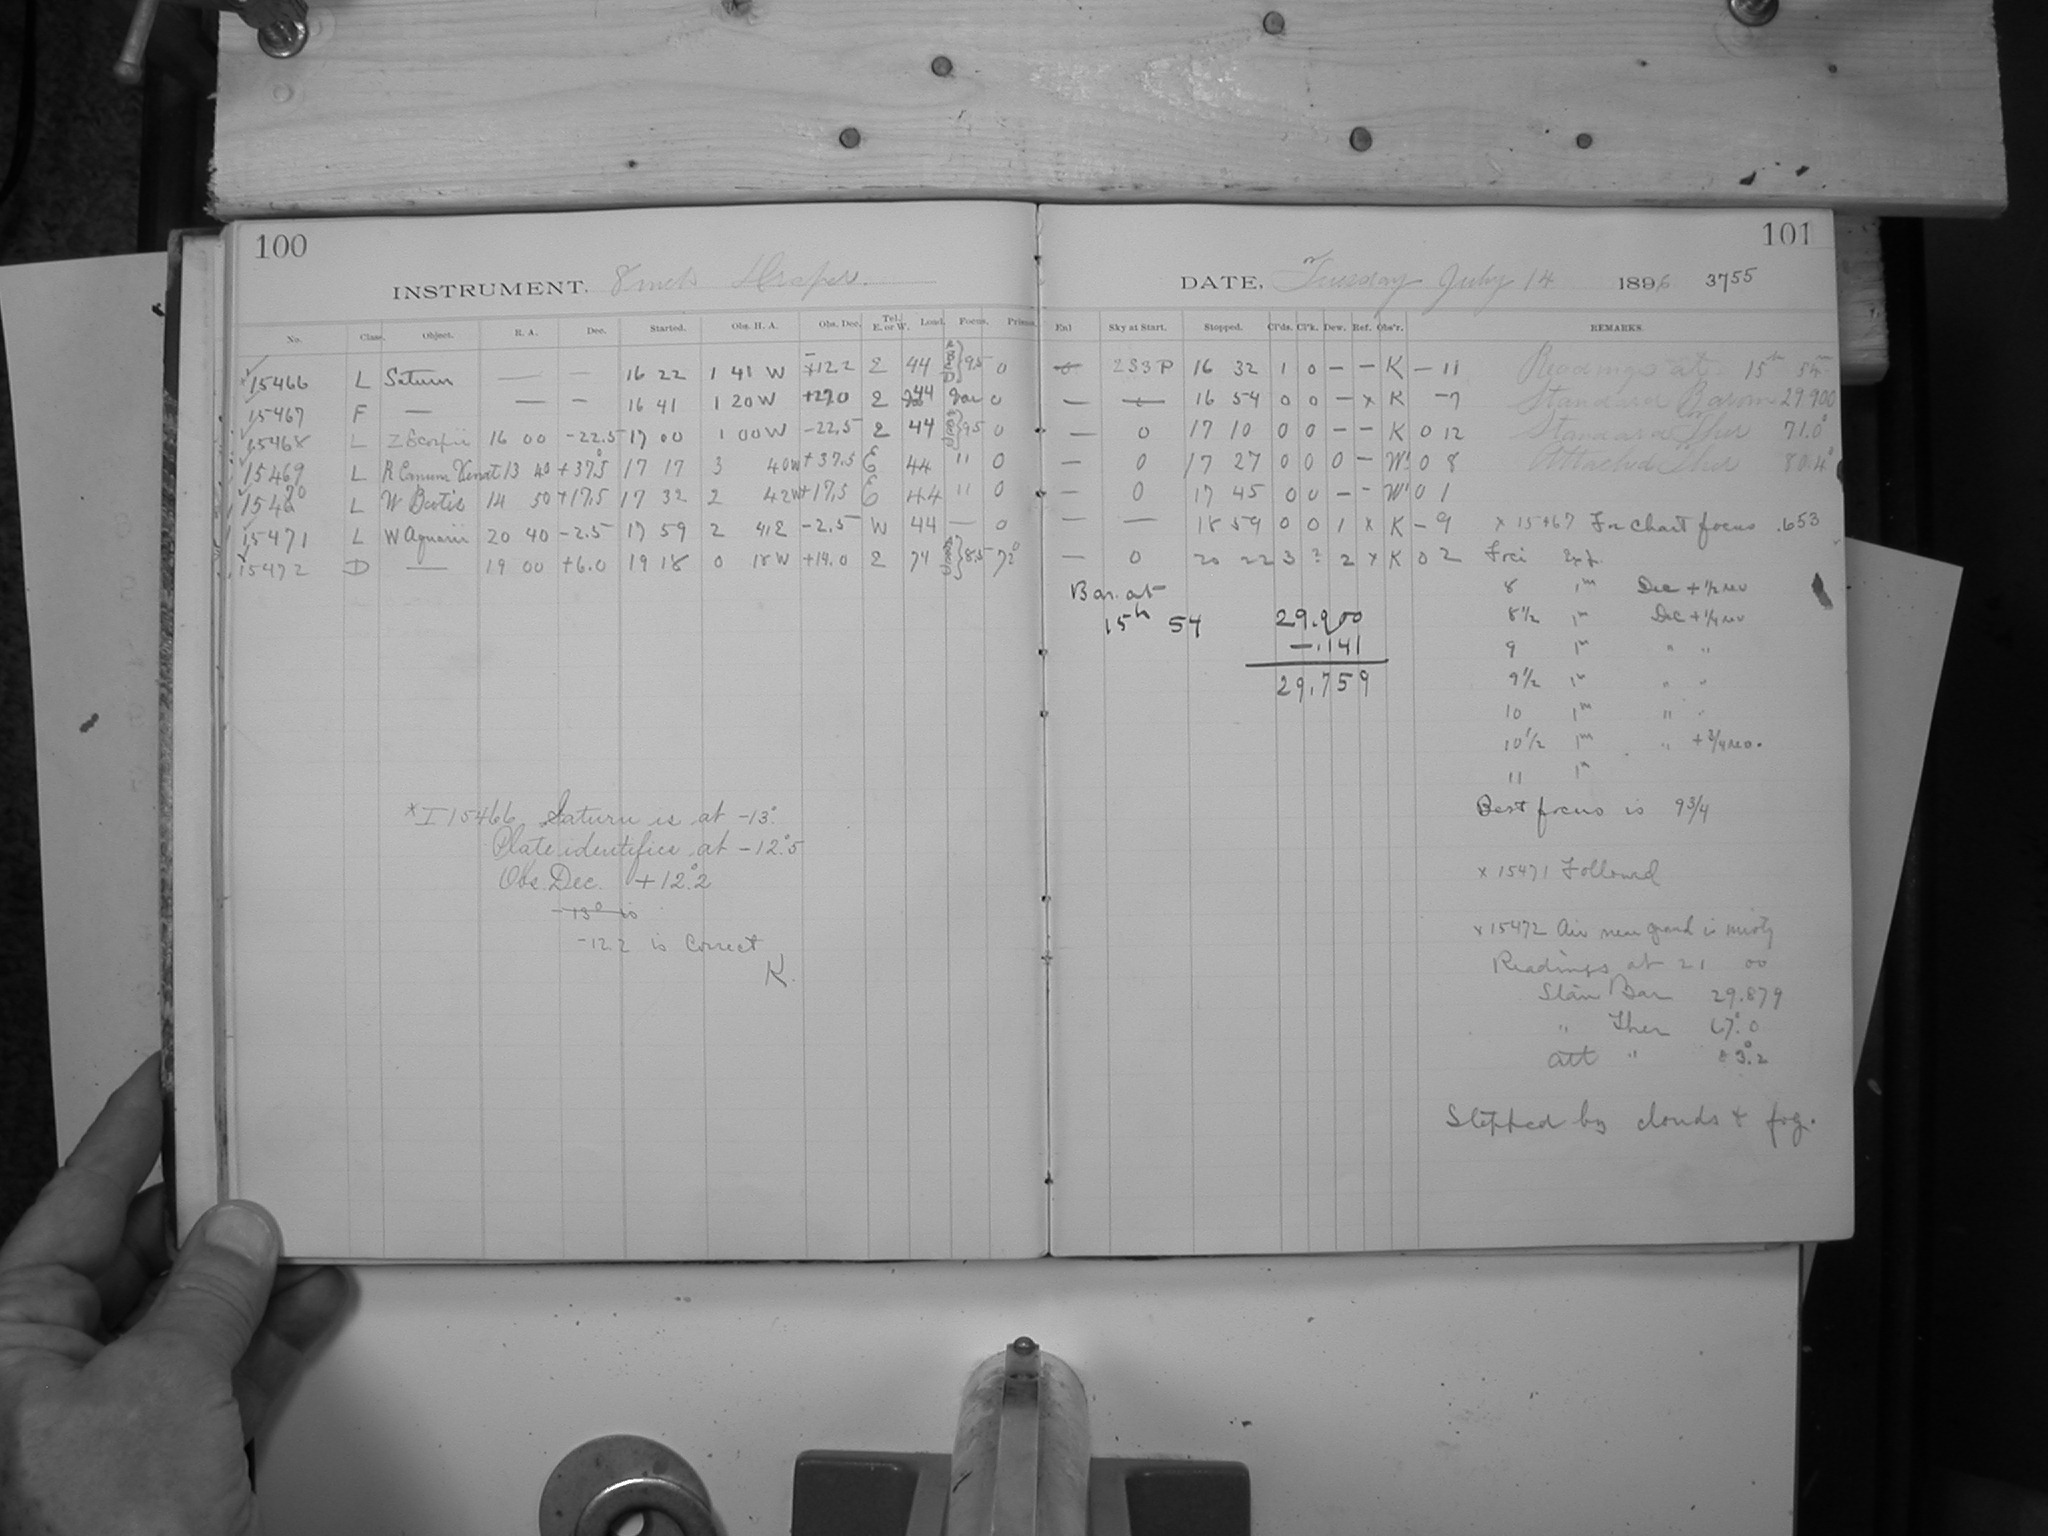 100
INSTRUMENT. 8 inch Draper.
No. Class. Object. R. A. Dec. Started. Obs. H. A. Obs. Dec. Tel. E. or W. Load. Focus. Prisms.
15466 L Saturn — — 16 22 1 41 W 12.2 E 44 9.5 0
15467 F — — — 16 41 1 20 W +27.0 E 44 0
15468 L Z Scorpii 16 00 -22.5 17 00 1 00 W -22.5 E 44 9.5 0
15469 L R Canum Venat 13 40 +37.5 17 17 3 40 W +37.5 E 44 " 0
15470 L W Bootis 14 50 +17.5 17 32 2 42 W +17.5 E 44 " 0
15471 L W Aquarii 20 40 -2.5 17 59 2 41 E -2.5 W 44 — 0
15472 D — 19 00 +6.0 19 18 0 18 W +14.0 E 74 8.5
*I 15466 Saturn is at -13°
Plate identifies at -12°.5
Obs. Dec. +12°.2
-13° is
-12.2 is Correct
K.
101
DATE, Tuesday July 14 1896 3755
Enl Sky at Start. Stopped. Cl'ds. Cl'k. Dew. Ref. Obs'r. REMARKS.
233 P 16 32 1 0 — — K — 11 Readings at 15h 54m
— 16 54 0 0 — x K -7 Standard Barom 29.900
— 0 17 10 0 0 — — K 0 12 Standard Ther 71.0°
— 0 17 27 0 0 0 — W' 0 8 Attached Ther 80.4°
— 0 17 45 0 0 — — W' 0 1
— — 18 59 0 0 1 x K — 9 x 15467 For chart focus .653
— 0 20 22 3 ? 2 x K 0 2 Foci Exp.
Bar. at
15h 54 29.900
-.141
29.759
8 1m Dec + 1/2 rev
8 1/2 1m Dec + 1/4 rev
9 1m " "
9 1/2 1m " "
10 1m " "
10 1/2 1m " + 3/4 rev.
11 1m
Best focus is 9 3/4
x 15471 Followed
x 15472 Air near ground is misty
Readings at 21 00
Stan Bar 29.879
" Ther 67°.0
att " 83°.2
Stopped by clouds & fog.